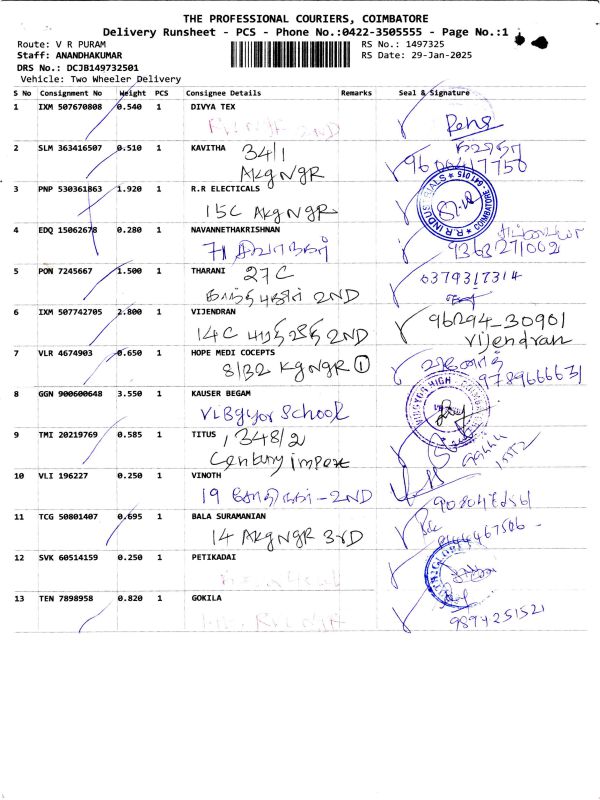 THE PROFESSIONAL COURIERS, COIMBATORE
Delivery Runsheet - PCS - Phone No.:0422-3505555 - Page No.:1
Route: V R PURAM
RS No.: 1497325
Staff: ANANDHAKUMAR
RS Date: 29-Jan-2025
DRS No.: DCJB149732501
Vehicle: Two Wheeler Delivery
S No Consignment No Weight PCS Consignee Details Remarks Seal & Signature
1 IXM 507670808 0.540 1 DIVYA TEX
2ND
2 SLM 363416507 0.510 1 KAVITHA 34/1
AKGNGR
3 PNP 530361863 1.920 1 R.R ELECTICALS
15C AKGNGR
R.R INDUSTRIALS COIMBATORE-641 015
4 EDQ 15062678 0.280 1 NAVANNETHAKRISHNAN
71 சிவாநகர் 9363271002
5 PON 7245667 1.500 1 THARANI 27C 6379317314
2ND
6 IXM 507742705 2.800 1 VIJENDRAN 96294-30901
14C 2ND Vijendran
7 VLR 4674903 0.650 1 HOPE MEDI COCEPTS
8/32 KGNGR 1 9789666631
8 GGN 900600648 3.550 1 KAUSER BEGAM
VIBGyor School
9 TMI 20219769 0.585 1 TITUS , 348/2
Century impex
10 VLI 196227 0.250 1 VINOTH
19 - 2ND
11 TCG 50801407 0.695 1 BALA SURAMANIAN
14 AKGNGR 3RD
12 SVK 60514159 0.250 1 PETIKADAI
13 TEN 7898958 0.820 1 GOKILA
9894251521